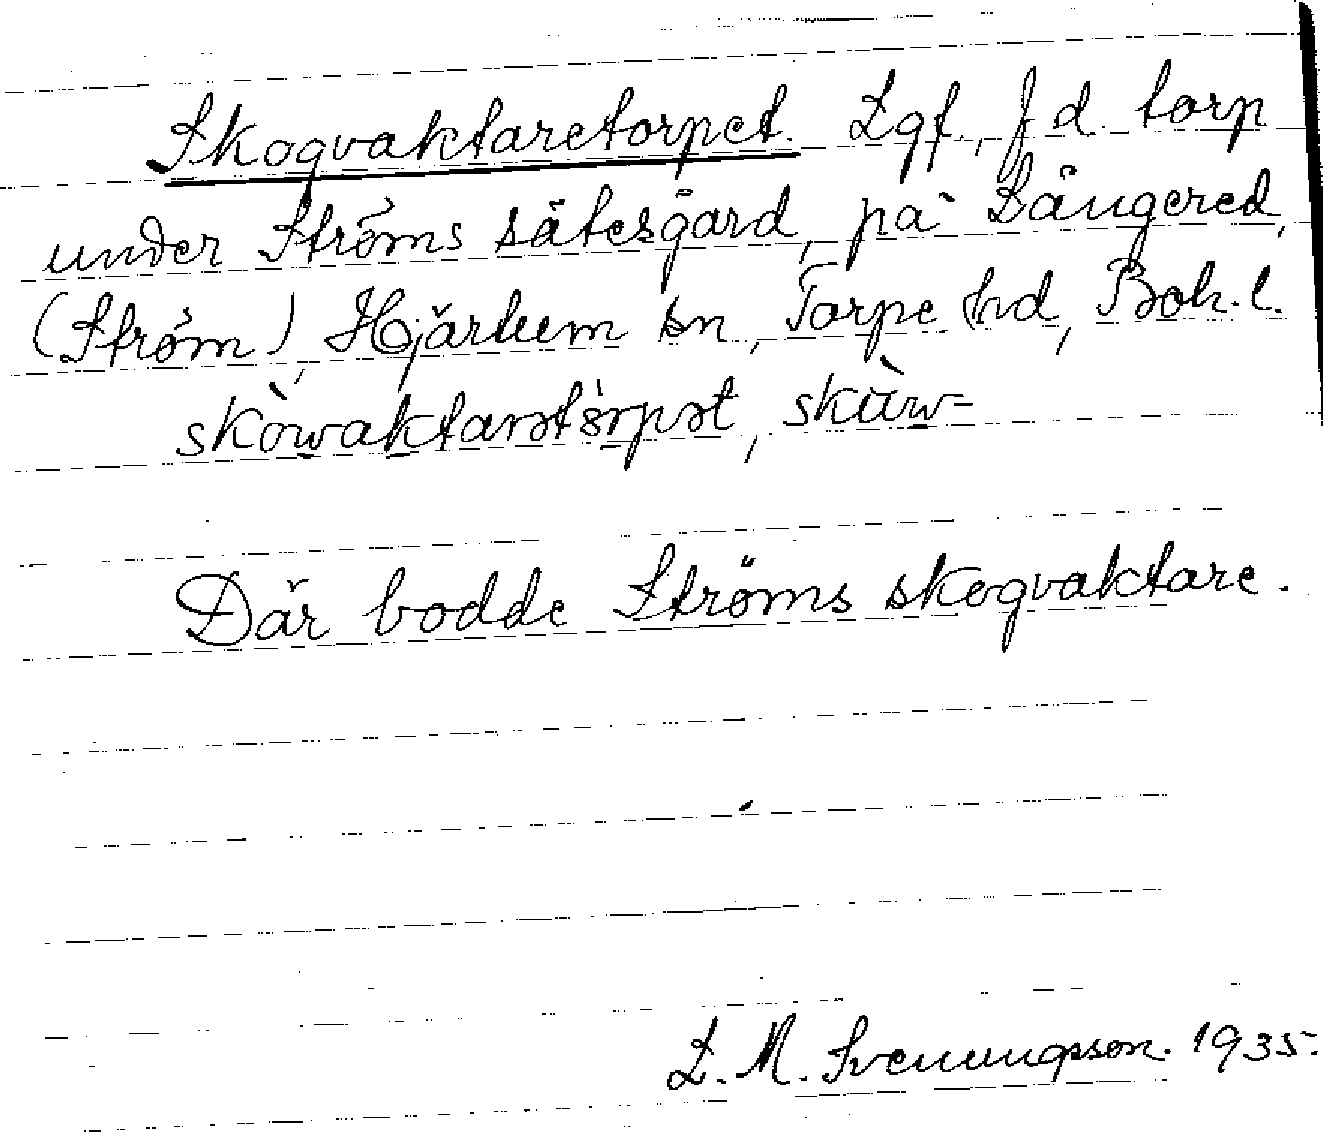 Skogvaktaretorpet. Lgf., f d. torp
under Ströms sätesgård, på Långered,
(Ström), Hjärtum sn, Torpe hd, Boh.l.
skòwaktarətö̀rpət, skùw-
Där bodde Ströms skogvaktare.
L. M. Svenungsson. 1935.